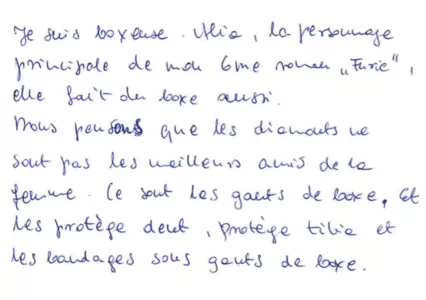 Je suis boxeuse. Alia, la personnage
principale de mon 6me roman „Furie",
elle fait du boxe aussi.
Nous pensons que les diamants ne
sont pas les meilleurs amis de la
femme. Ce sont les gants de boxe. Et
les protège dent, protège tibia et
les bandages sous gants de boxe.